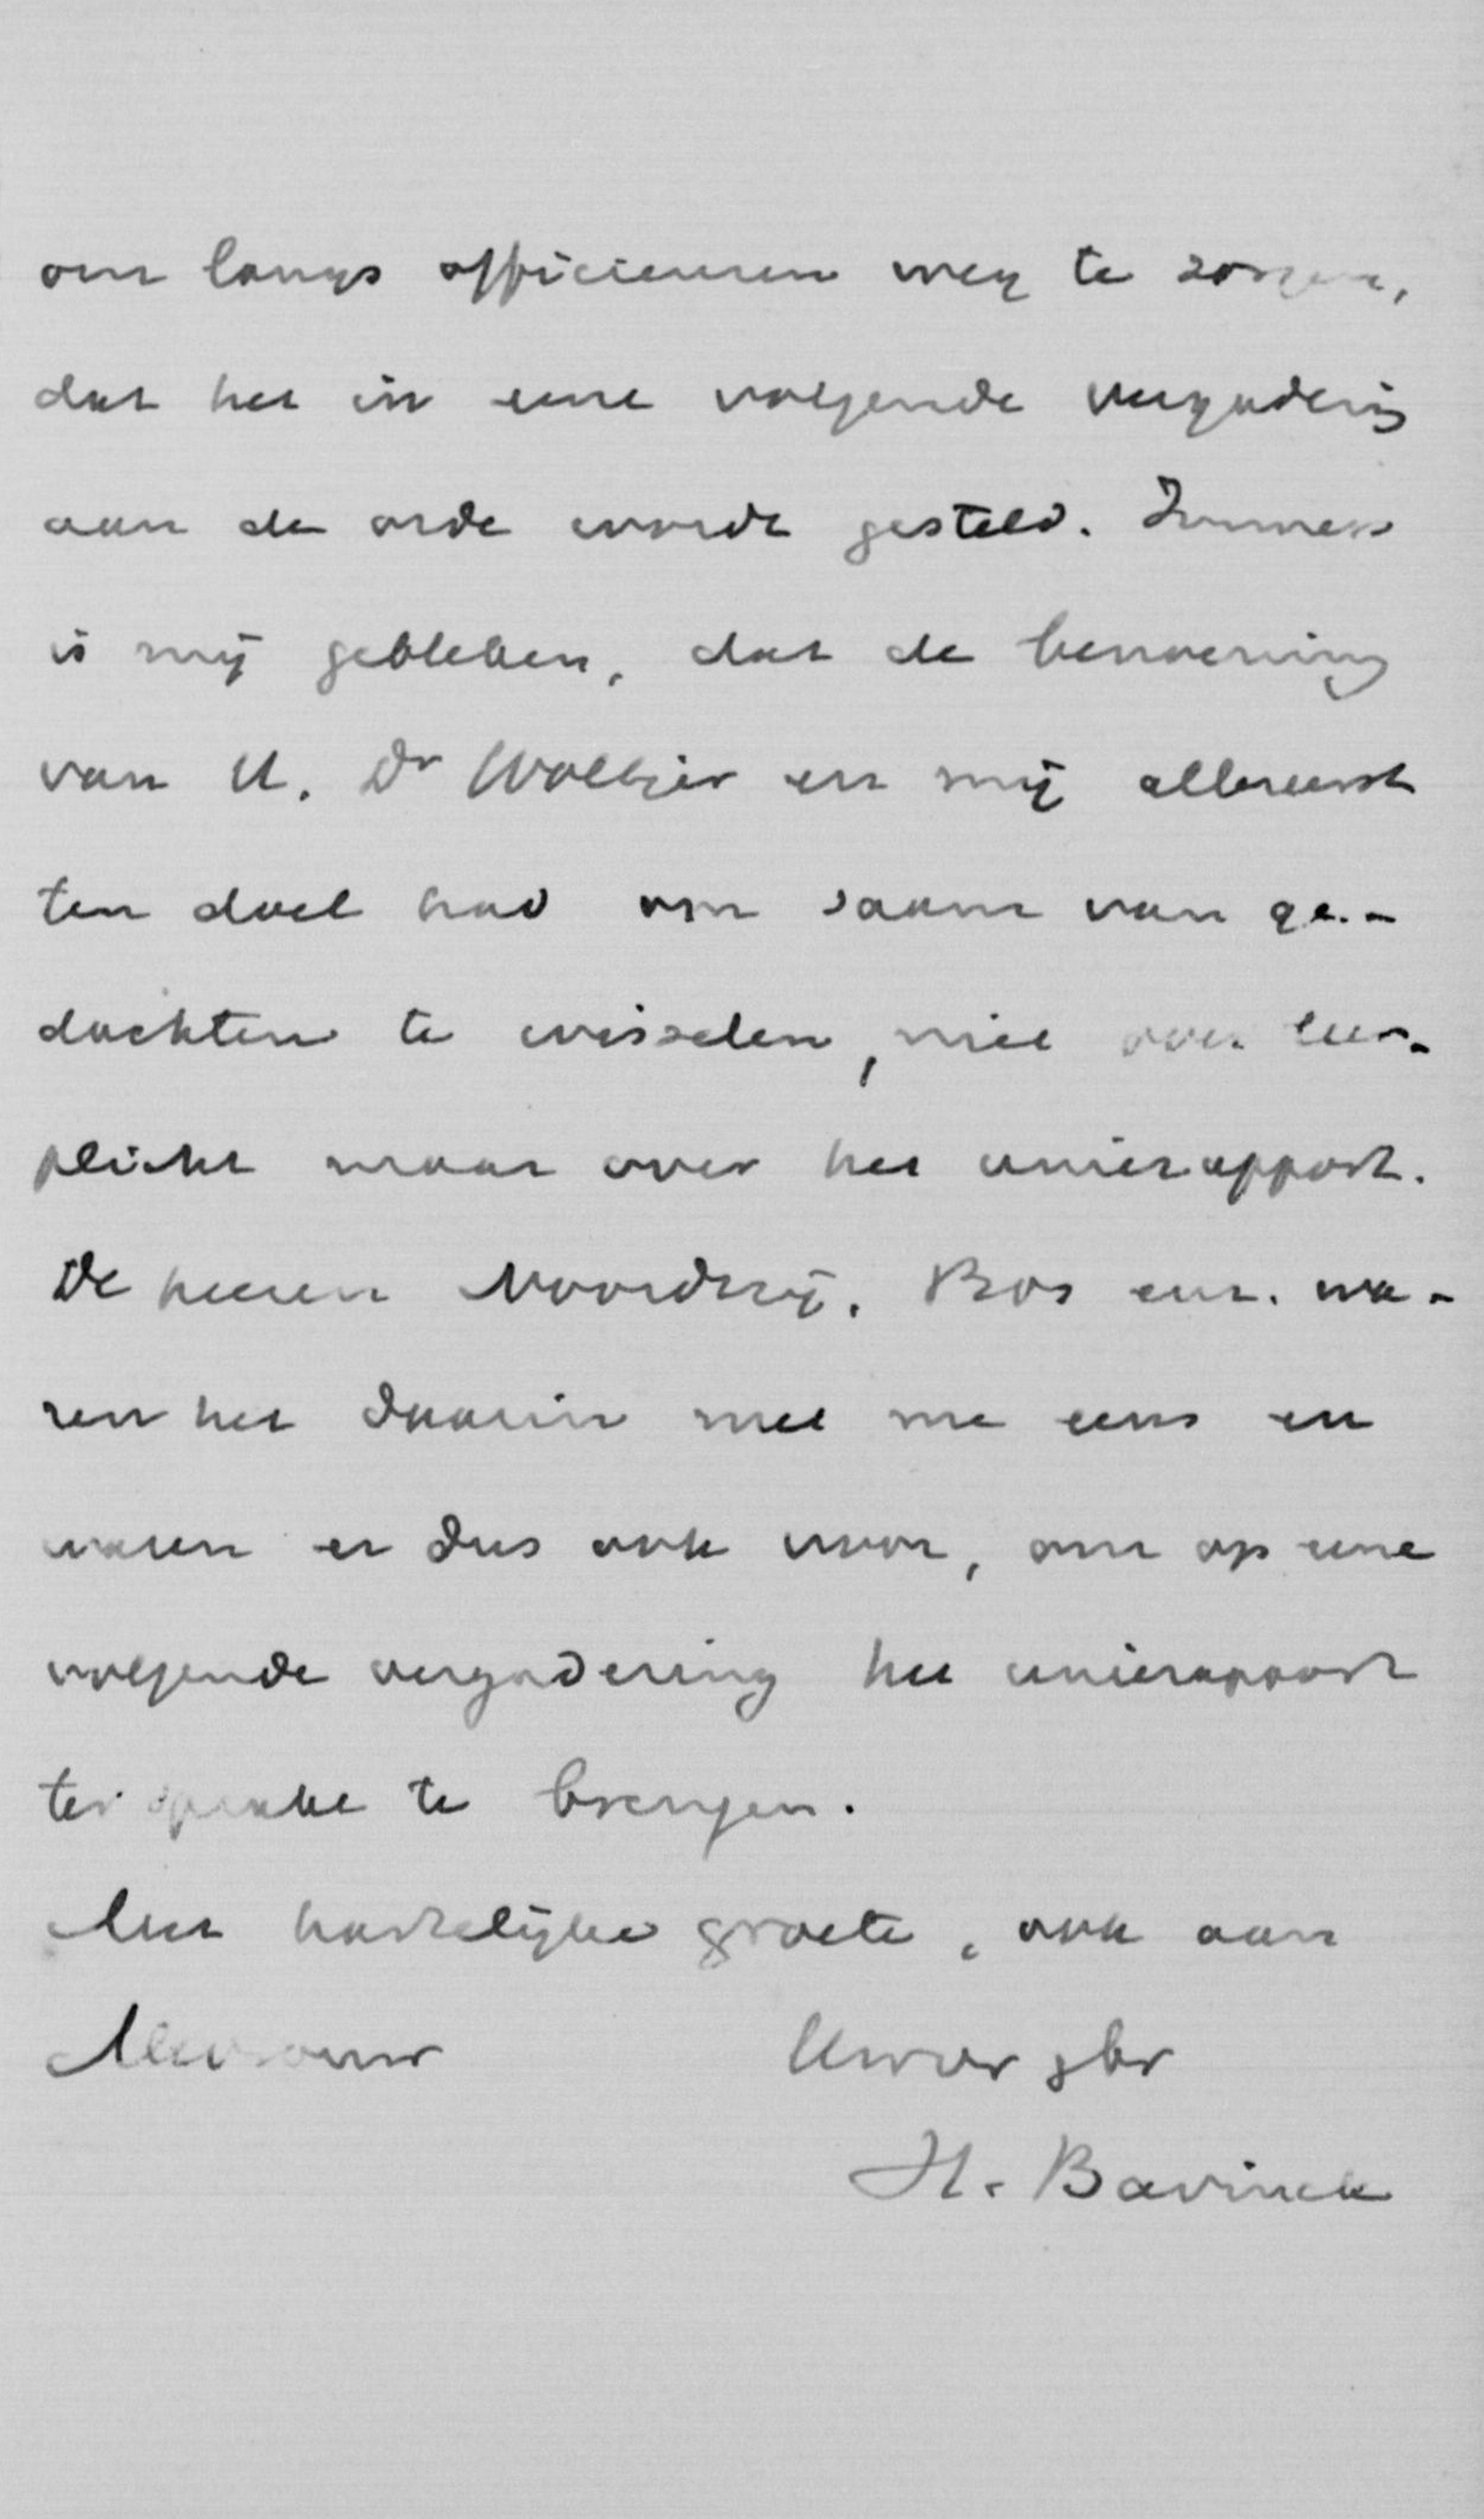 om langs officieuzen weg te zorgen,
dat het in eene volgende vergadering
aan de orde wordt gesteld. Immers
is mij gebleken, dat de benoeming
van U, Dr Woltjer en mij allereerst
ten doel had om saam van ge-
dachten te wisselen, niet over leer-
plicht maar over het unierapport.
De heeren Noordtzij, Bos enz. wa-
ren het daarin met me eens en
waren er dus ook voor, om op eene
volgende vergadering het unierapport
ter sprake te brengen.
Met hartelijke groete, ook aan
Mevrouw Uwer gbr
H. Bavinck